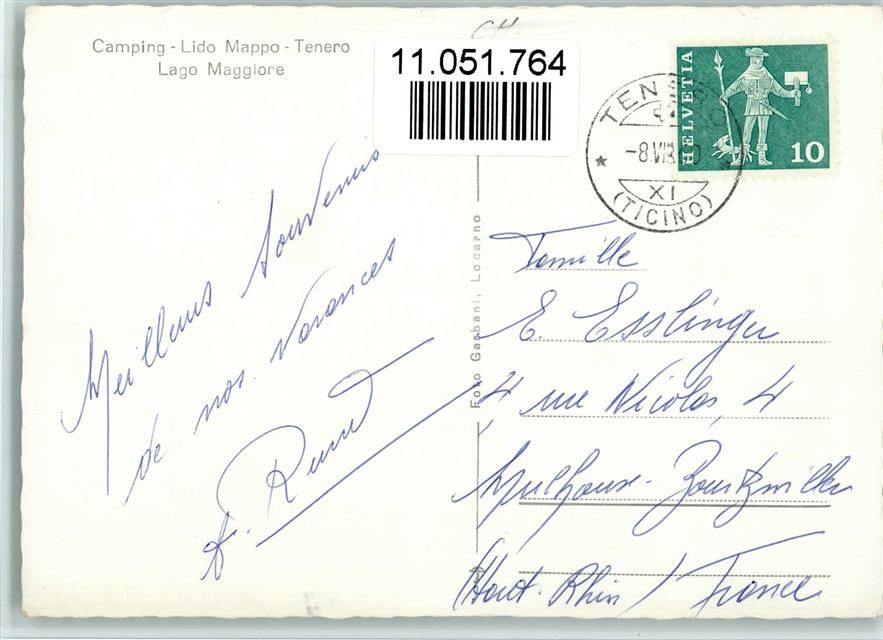 Camping - Lido Mappo - Tenero
Lago Maggiore
CH
11.051.764
HELVETIA
10
TENERO
-8.VIII
XI
(TICINO)
Foto Garbani, Locarno
Meilleurs Souvenirs
de nos Vacances
Famille
E. Esslinger
4, rue Nicolas, 4
Mulhouse - Bourtzwiller
(Haut-Rhin) France